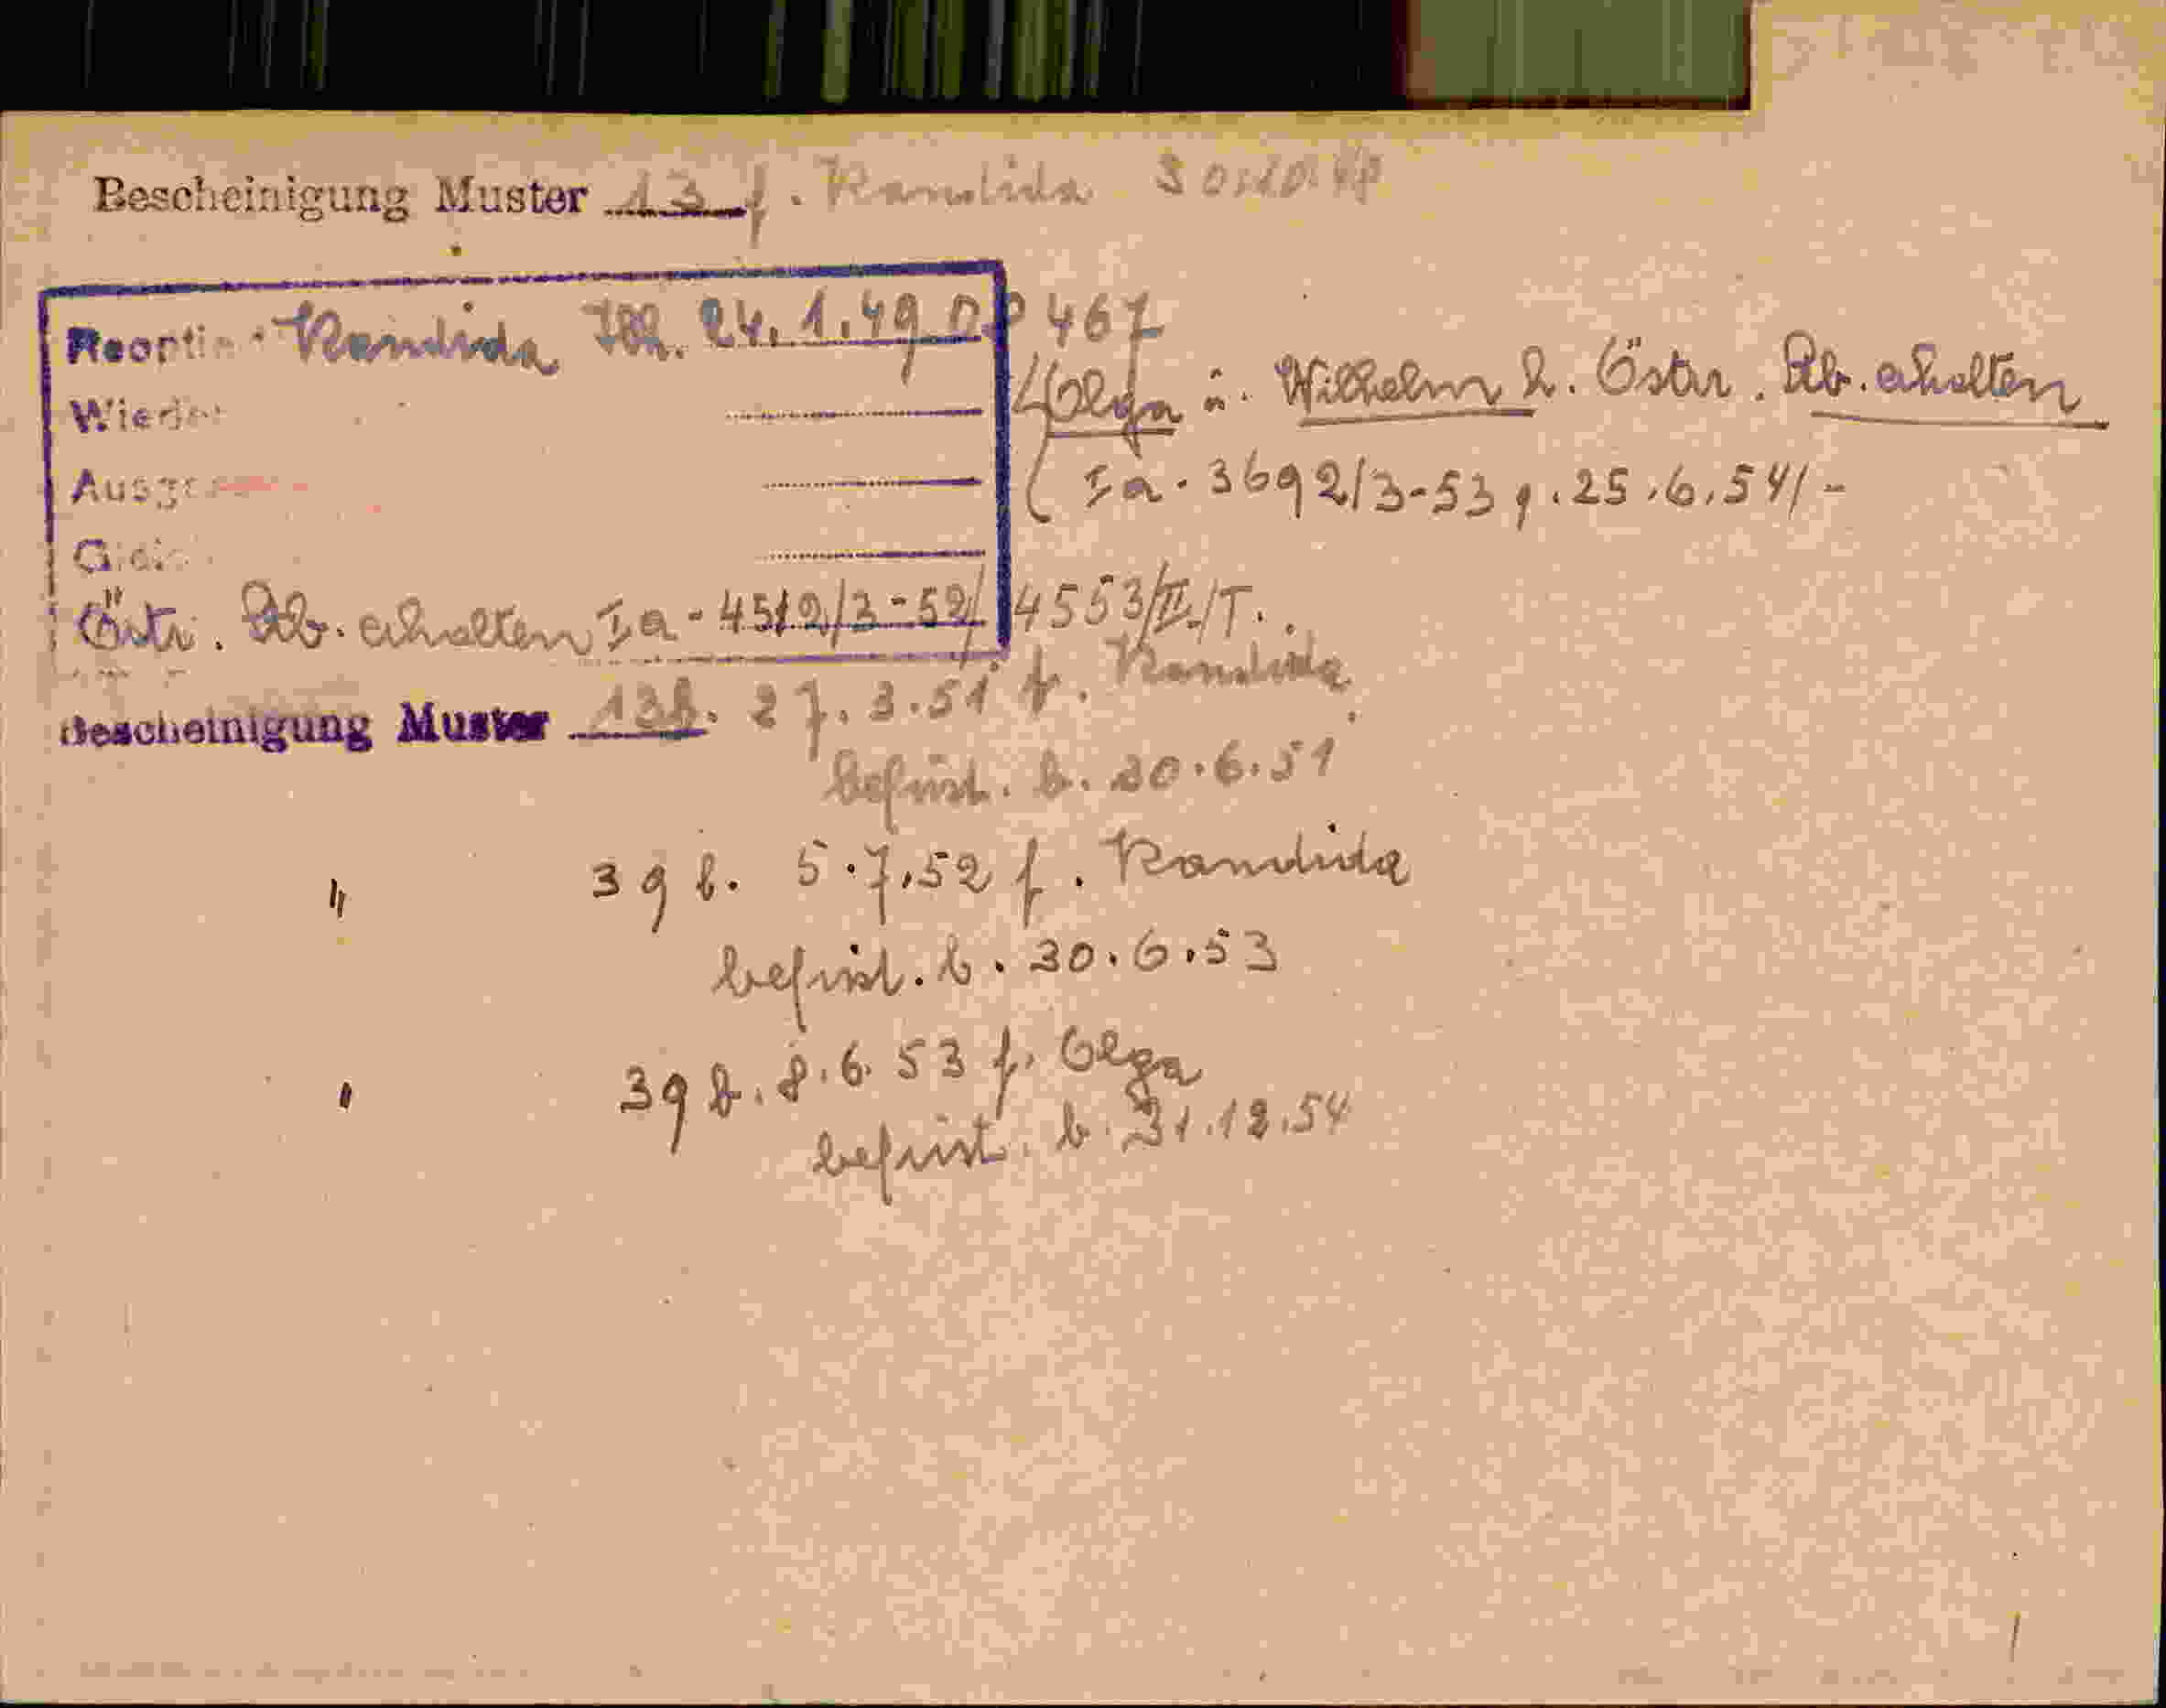 Bescheinigung Muster 13 f. Kandida 30.10.48
Reoptie Kandida 24.1.49 467
Olga u. Wilhelm h. Östr. Stb. erhalten
Wieder
Ia-3692/3-53 v. 25.6.54/-
Ausge
Östr. Stb. erhalten Ia-4512/3-52/4553/II./T.
Bescheinigung Muster 13b. 27.3.51 f. Kandida
befrist. b. 30.6.51
" 39 b. 5.7.52 f. Kandida
befrist. b. 30.6.53
" 39 b. 8.6.53 f. Olga
befrist. b. 31.12.54